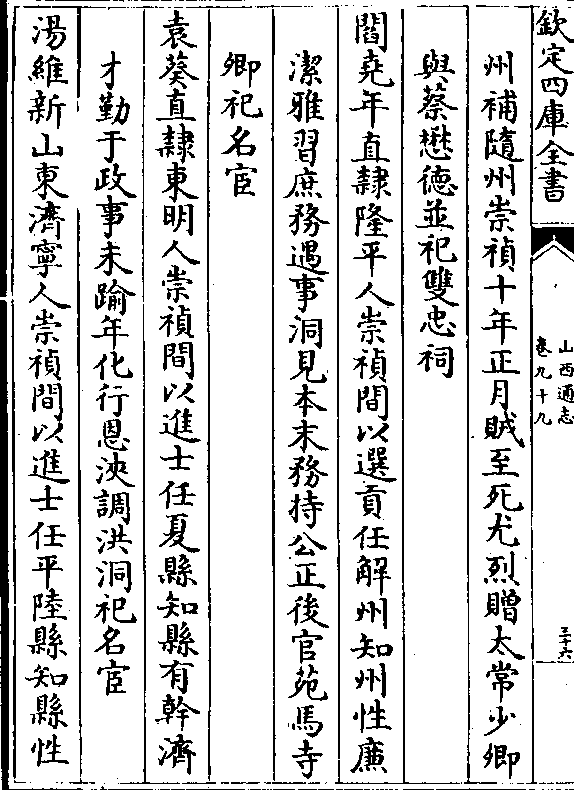 欽定四庫全書
山西通志
卷九十九
三十六
州補隨州崇禎十年正月賊至死尤烈贈太常少卿
與蔡懋德並祀雙忠祠
閻堯年直隸隆平人崇禎間以選貢任解州知州性廉
潔雅習庶務遇事洞見本末務持公正後官苑馬寺
卿祀名宦
袁葵直隸東明人崇禎間以進士任夏縣知縣有幹濟
才勤于政事未踰年化行恩浹調洪洞祀名宦
湯維新山東濟寧人崇禎間以進士任平陸縣知縣性